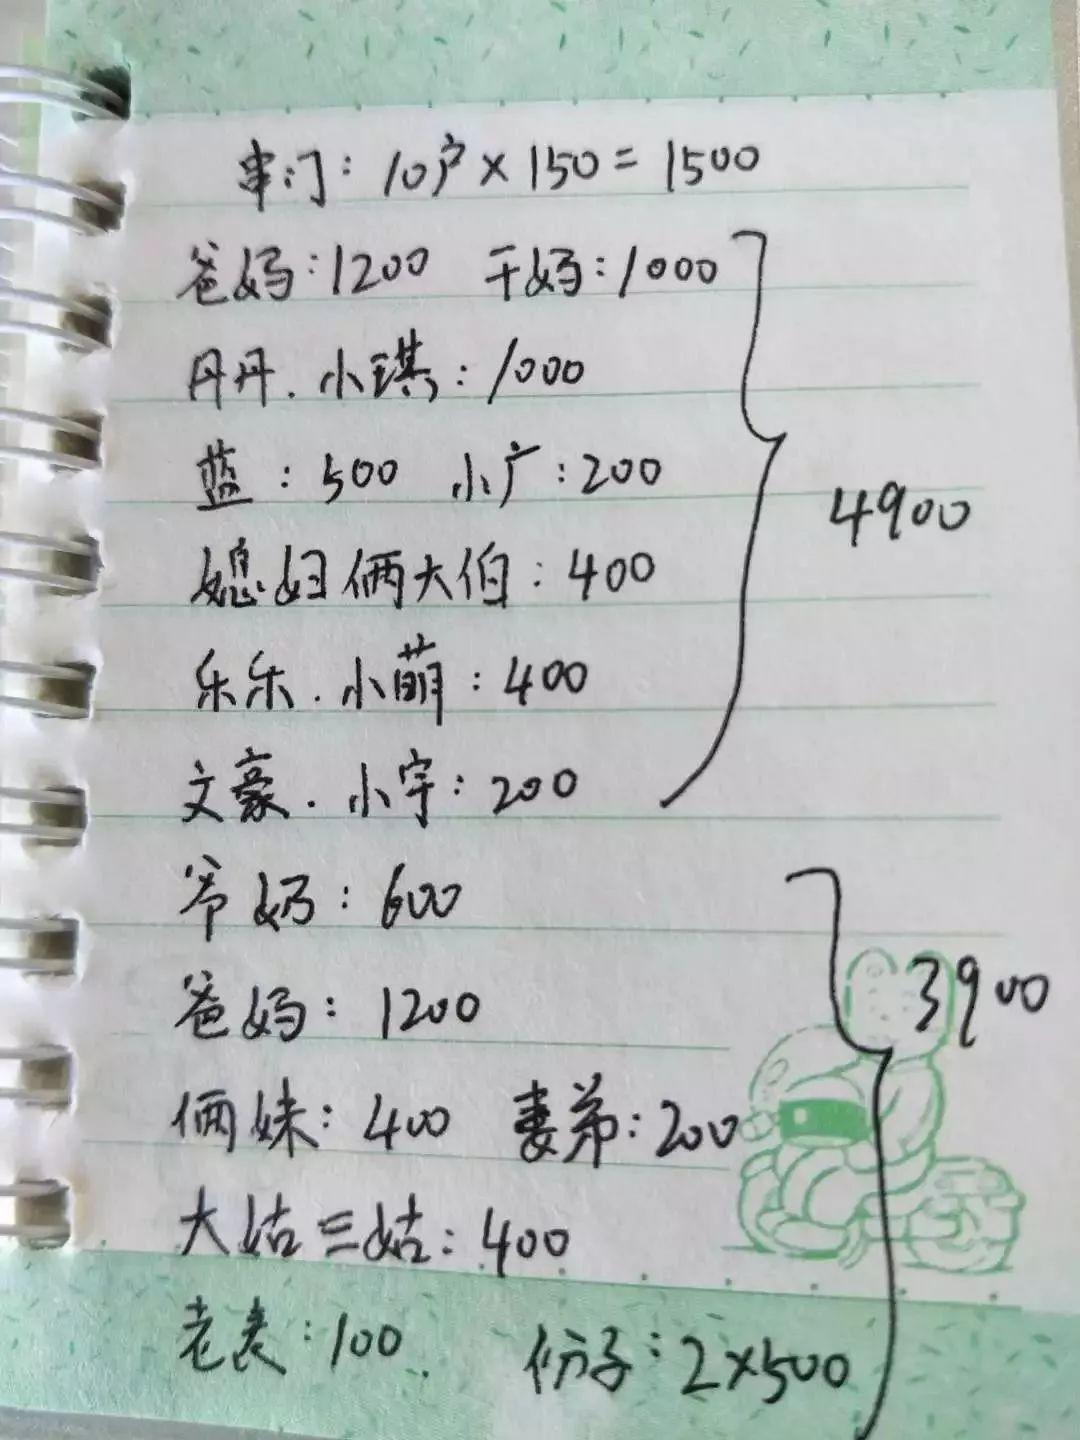 串门：10户×150=1500
爸妈：1200 干妈：1000
丹丹．小琪：1000
蓝：500 小广：200
4900
媳妇俩大伯：400
乐乐．小萌：400
文豪．小宇：200
爷奶：600
3900
爸妈：1200
俩妹：400 妻弟：200
大姑三姑：400
老表：100 份子：2×500